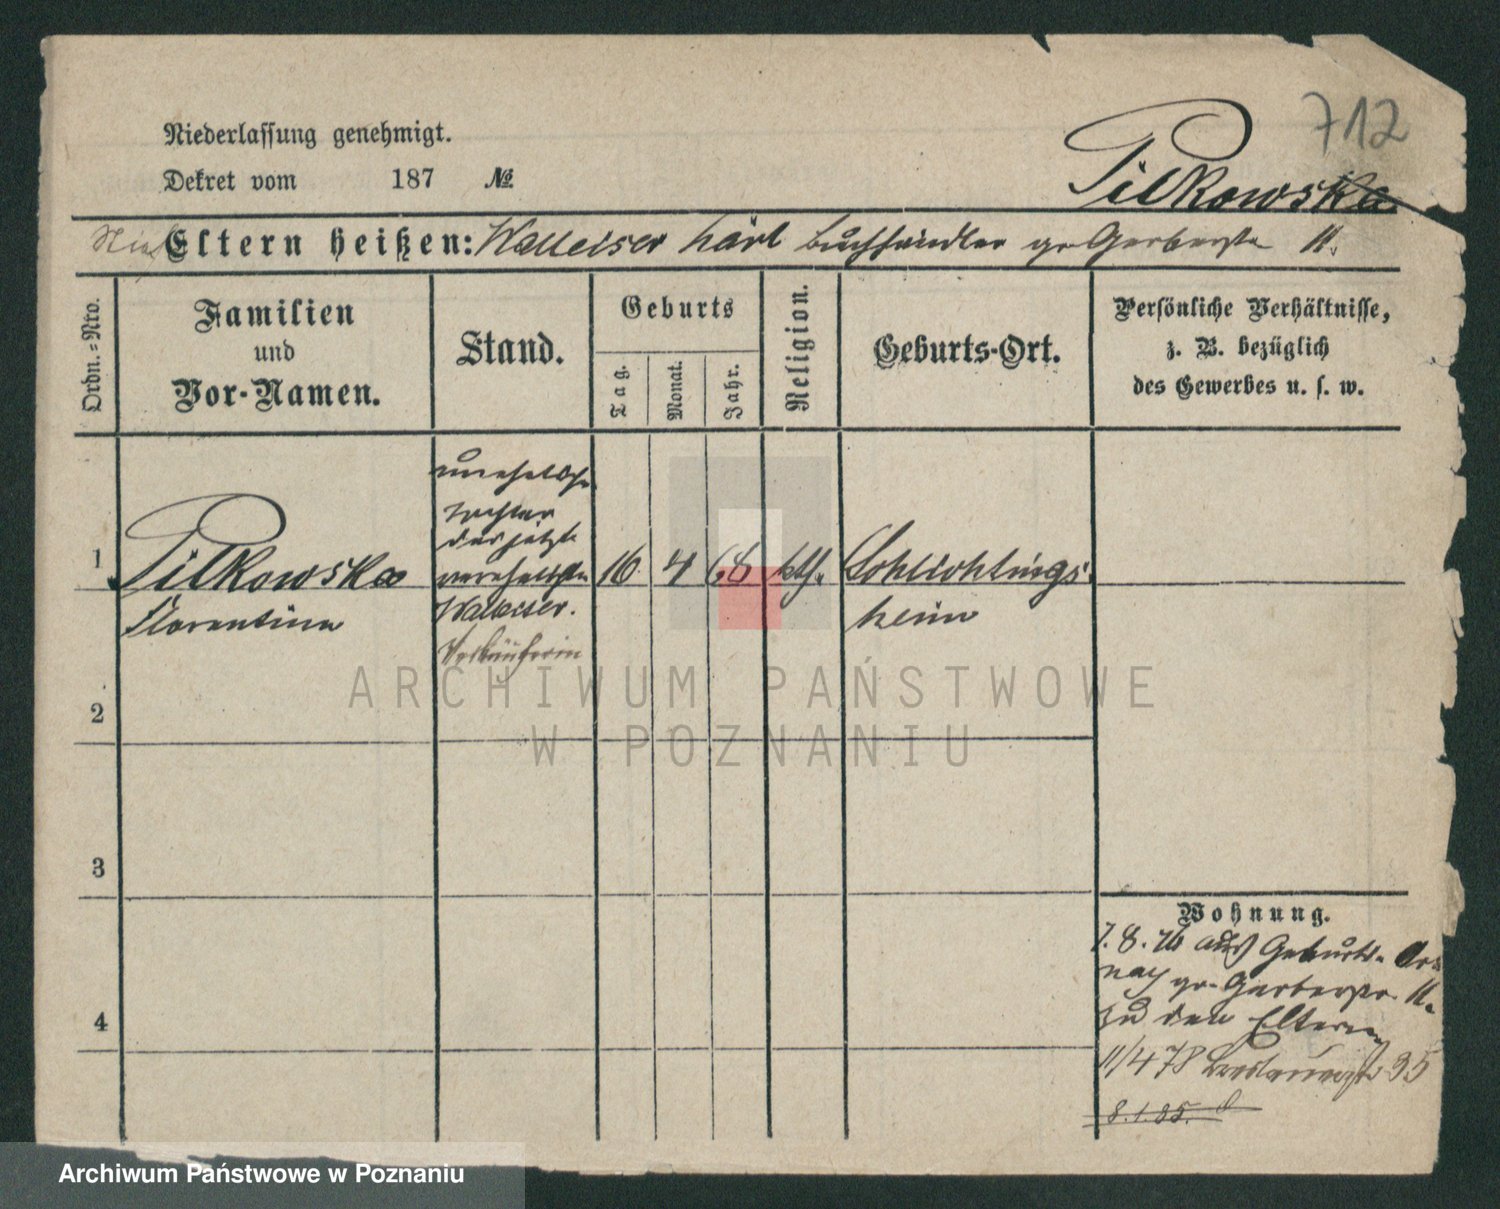 712
Niederlassung genehmigt.
Dekret vom 187 №
Pilkowska
Eltern heißen: Walleiser Karl Buchhändler gr. Gerberstr. 11.
Ordn.=Nro.
Familien
und
Vor-Namen.
Stand.
Geburts
Tag.
Monat.
Jahr.
Religion.
Geburts-Ort.
Persönliche Verhältnisse,
z. B. bezüglich
des Gewerbes u. s. w.
1
Pilkowska
Florentine
uneheliche
Tochter
der jetzt
verehelichten
Walleiser.
Verkäuferin
16 4 68 kth.
heim
2
3
4
Wohnung.
7. 8. 76 aus Geburts-Ort
nach gr. Gerberstr. 11.
zu den Eltern
11/4 78 Breslauerstr 35
8.1.85.
ARCHIWUM PAŃSTWOWE
W POZNANIU
Archiwum Państwowe w Poznaniu